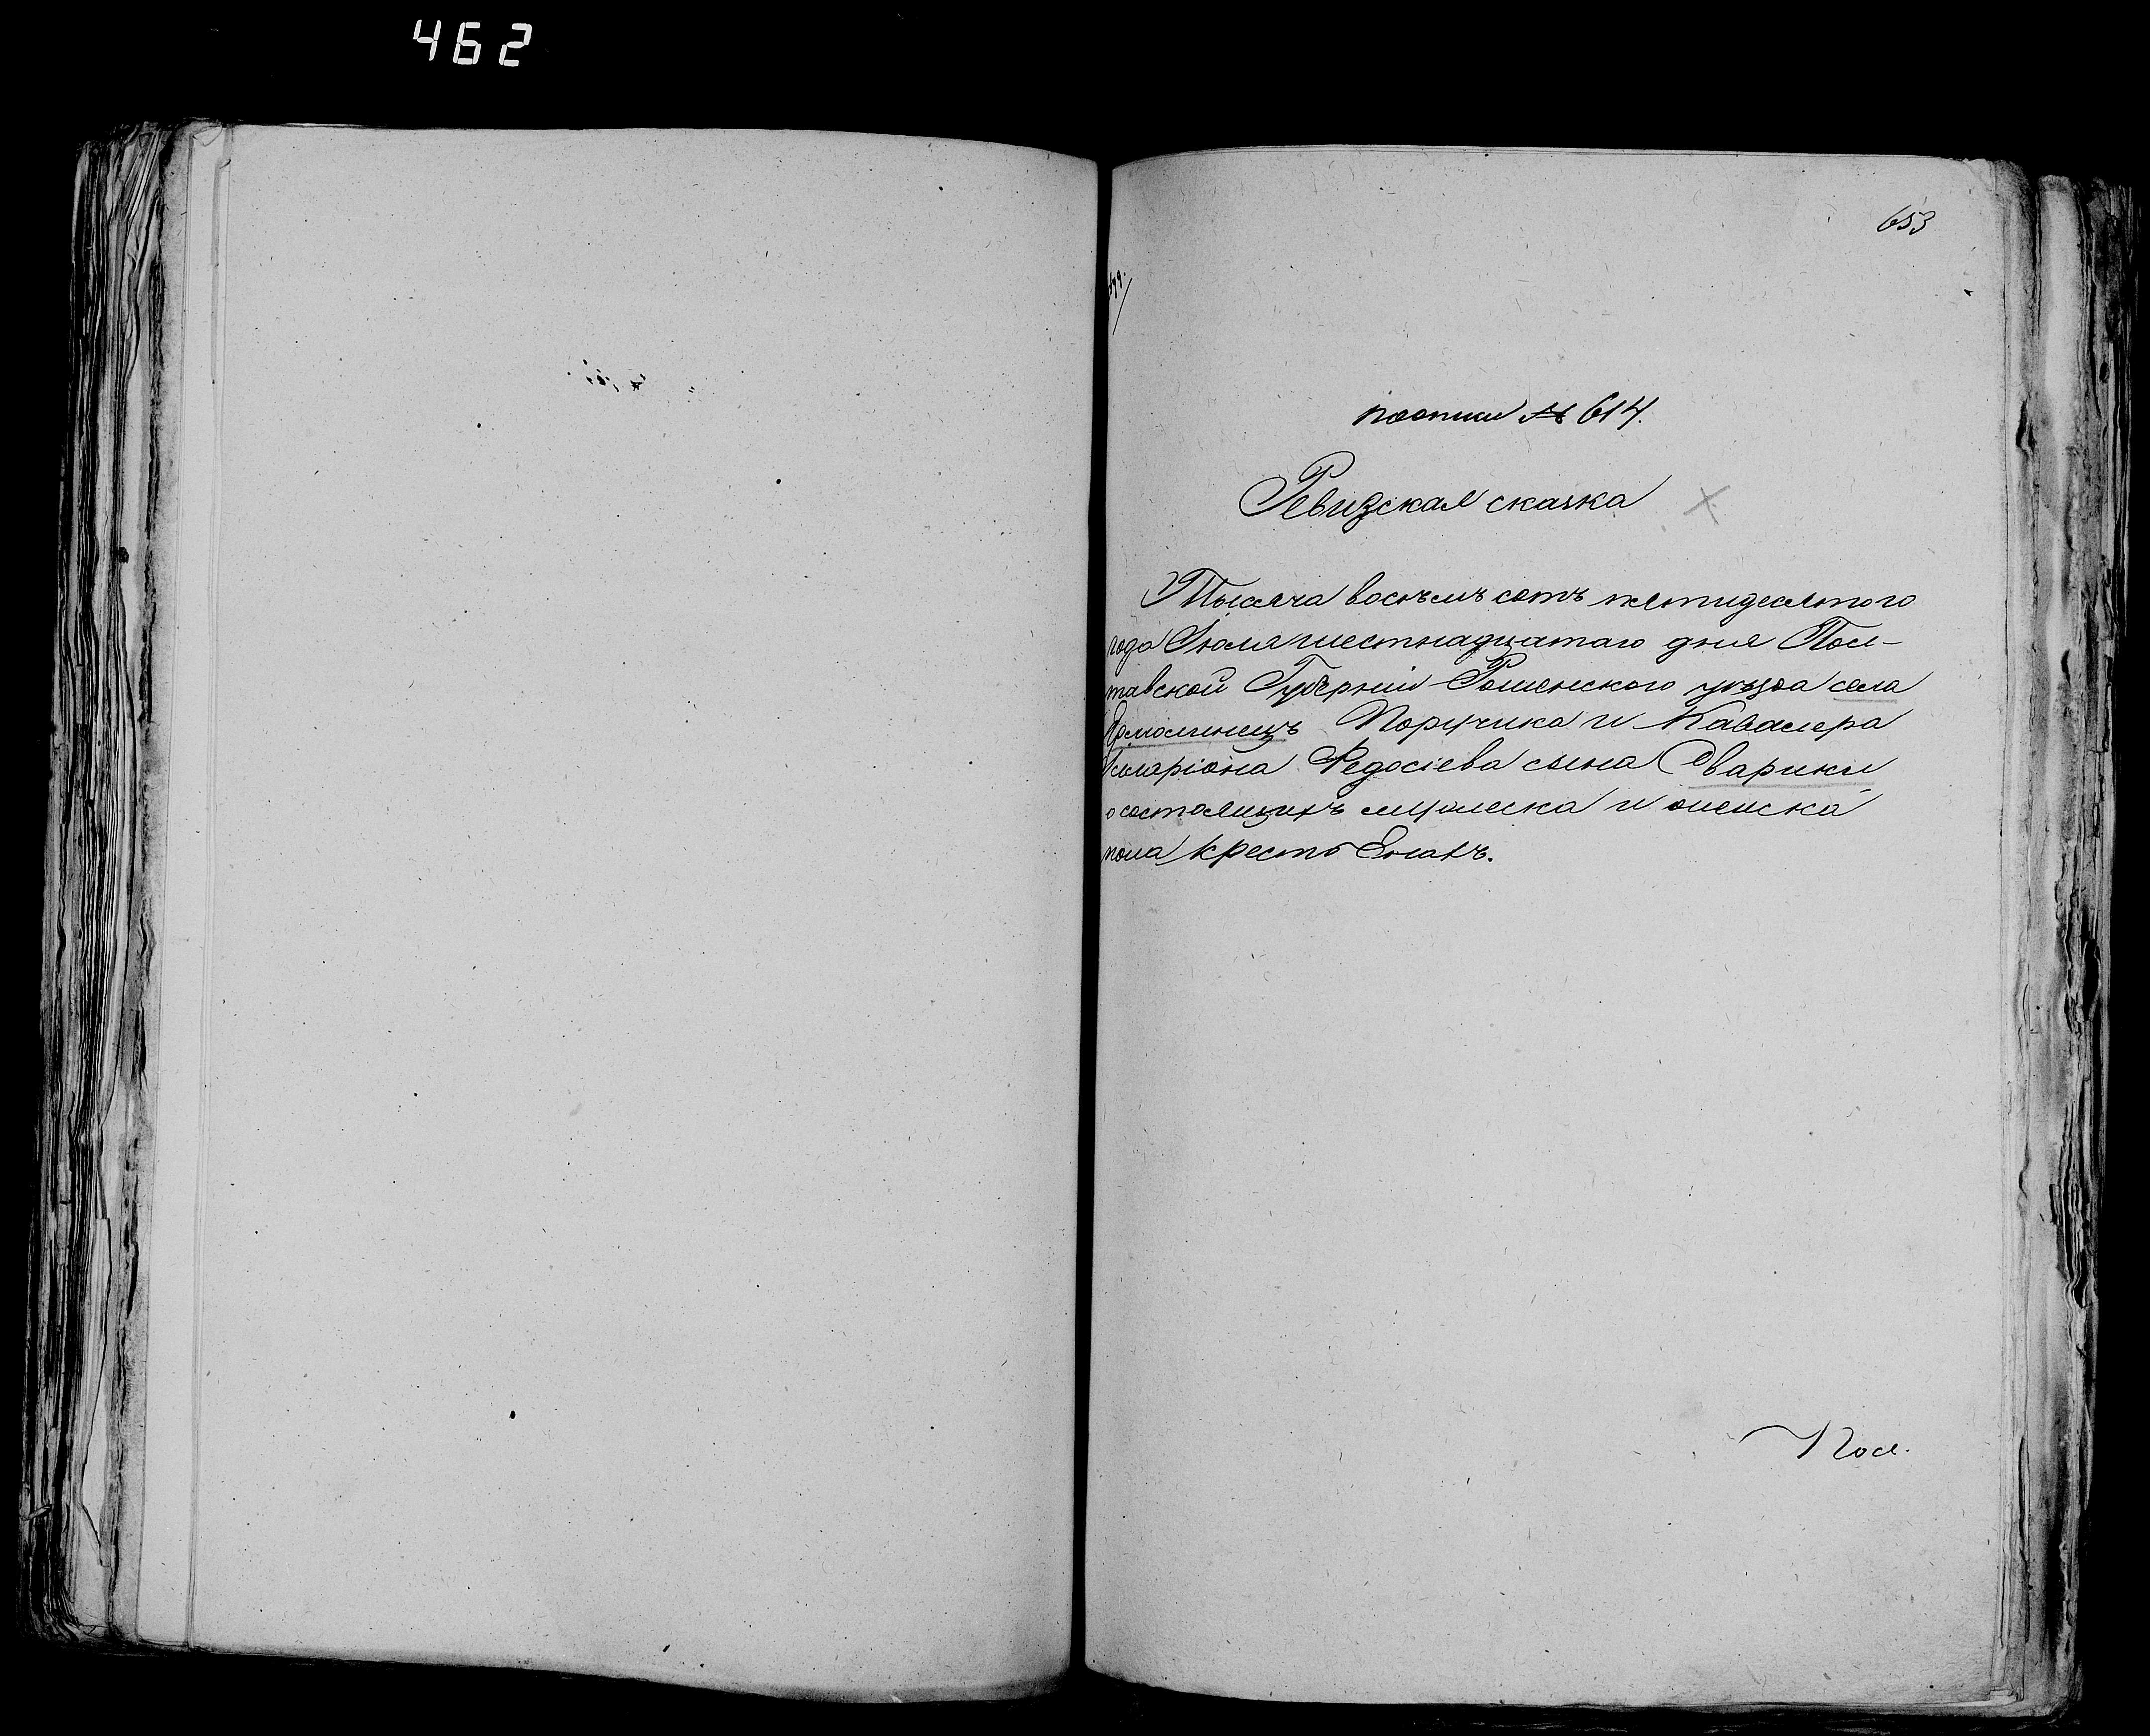 462
653
по описи № 614.
Ревизская сказка
Тысяча восъемъ сотъ пятидесятого
года Іюля шестнадцатаго дня Пол-
тавской Губерніи Роменского уѣзда села
Ярмолинецъ Поручика и Кавалера
Иларіона Федосіева сына Сварики
о состоящихъ мужеска и женска
пола крестьянахъ.